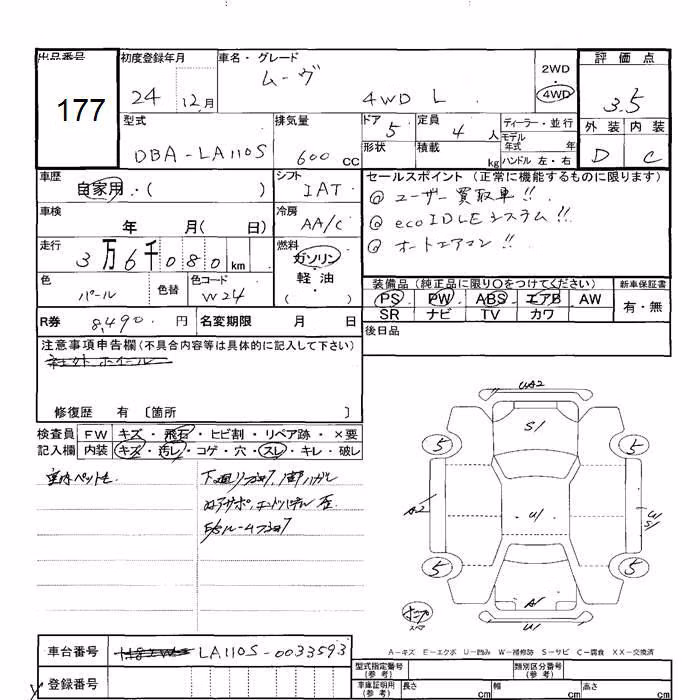 出品番号 初度登録年月 車名・グレード 評価点
177
24 12月 ムーヴ 4WD L
2WD
4WD
3.5
型式 排気量 ドア 定員 ディーラー・並行 外装 内装
DBA-LA110S 660 cc 5 4人
モデル年式 年
形状 積載 kg ハンドル 左・右
D C
車歴 シフト セールスポイント(正常に機能するものに限ります)
自家用・( ) IAT
◎ ユーザー買取車!!
車検 冷房
年 月( 日) AA/C
◎ ecoIDLEシステム!!
走行 燃料
3万6千080km ガソリン・軽油・( )
◎ オートエアコン!!
色 色替 色コード
パール W24
装備品(純正品に限り○をつけてください) 新車保証書
PS PW ABS エアB AW 有・無
SR ナビ TV カワ
R券 8,490.円 名変期限 月 日
後日品
注意事項申告欄(不具合内容等は具体的に記入して下さい)
社外ホイール
修復歴 有 〔箇所 〕
検査員 FW キズ・飛石・ヒビ割・リペア跡・×要
記入欄 内装 キズ・汚レ・コゲ・穴・スレ・キレ・破レ
UA2
S/
5 5
A2 U/ U/
S/
5 5
A/
U/
A…キズ E…エクボ U…凹み W…補修跡 S…サビ C…腐食 XX…交換済
車台番号 LA110S-0033593
登録番号
型式指定番号(参考) 類別区分番号(参考)
車庫証明用(参考) 長さ cm 幅 cm 高さ cm